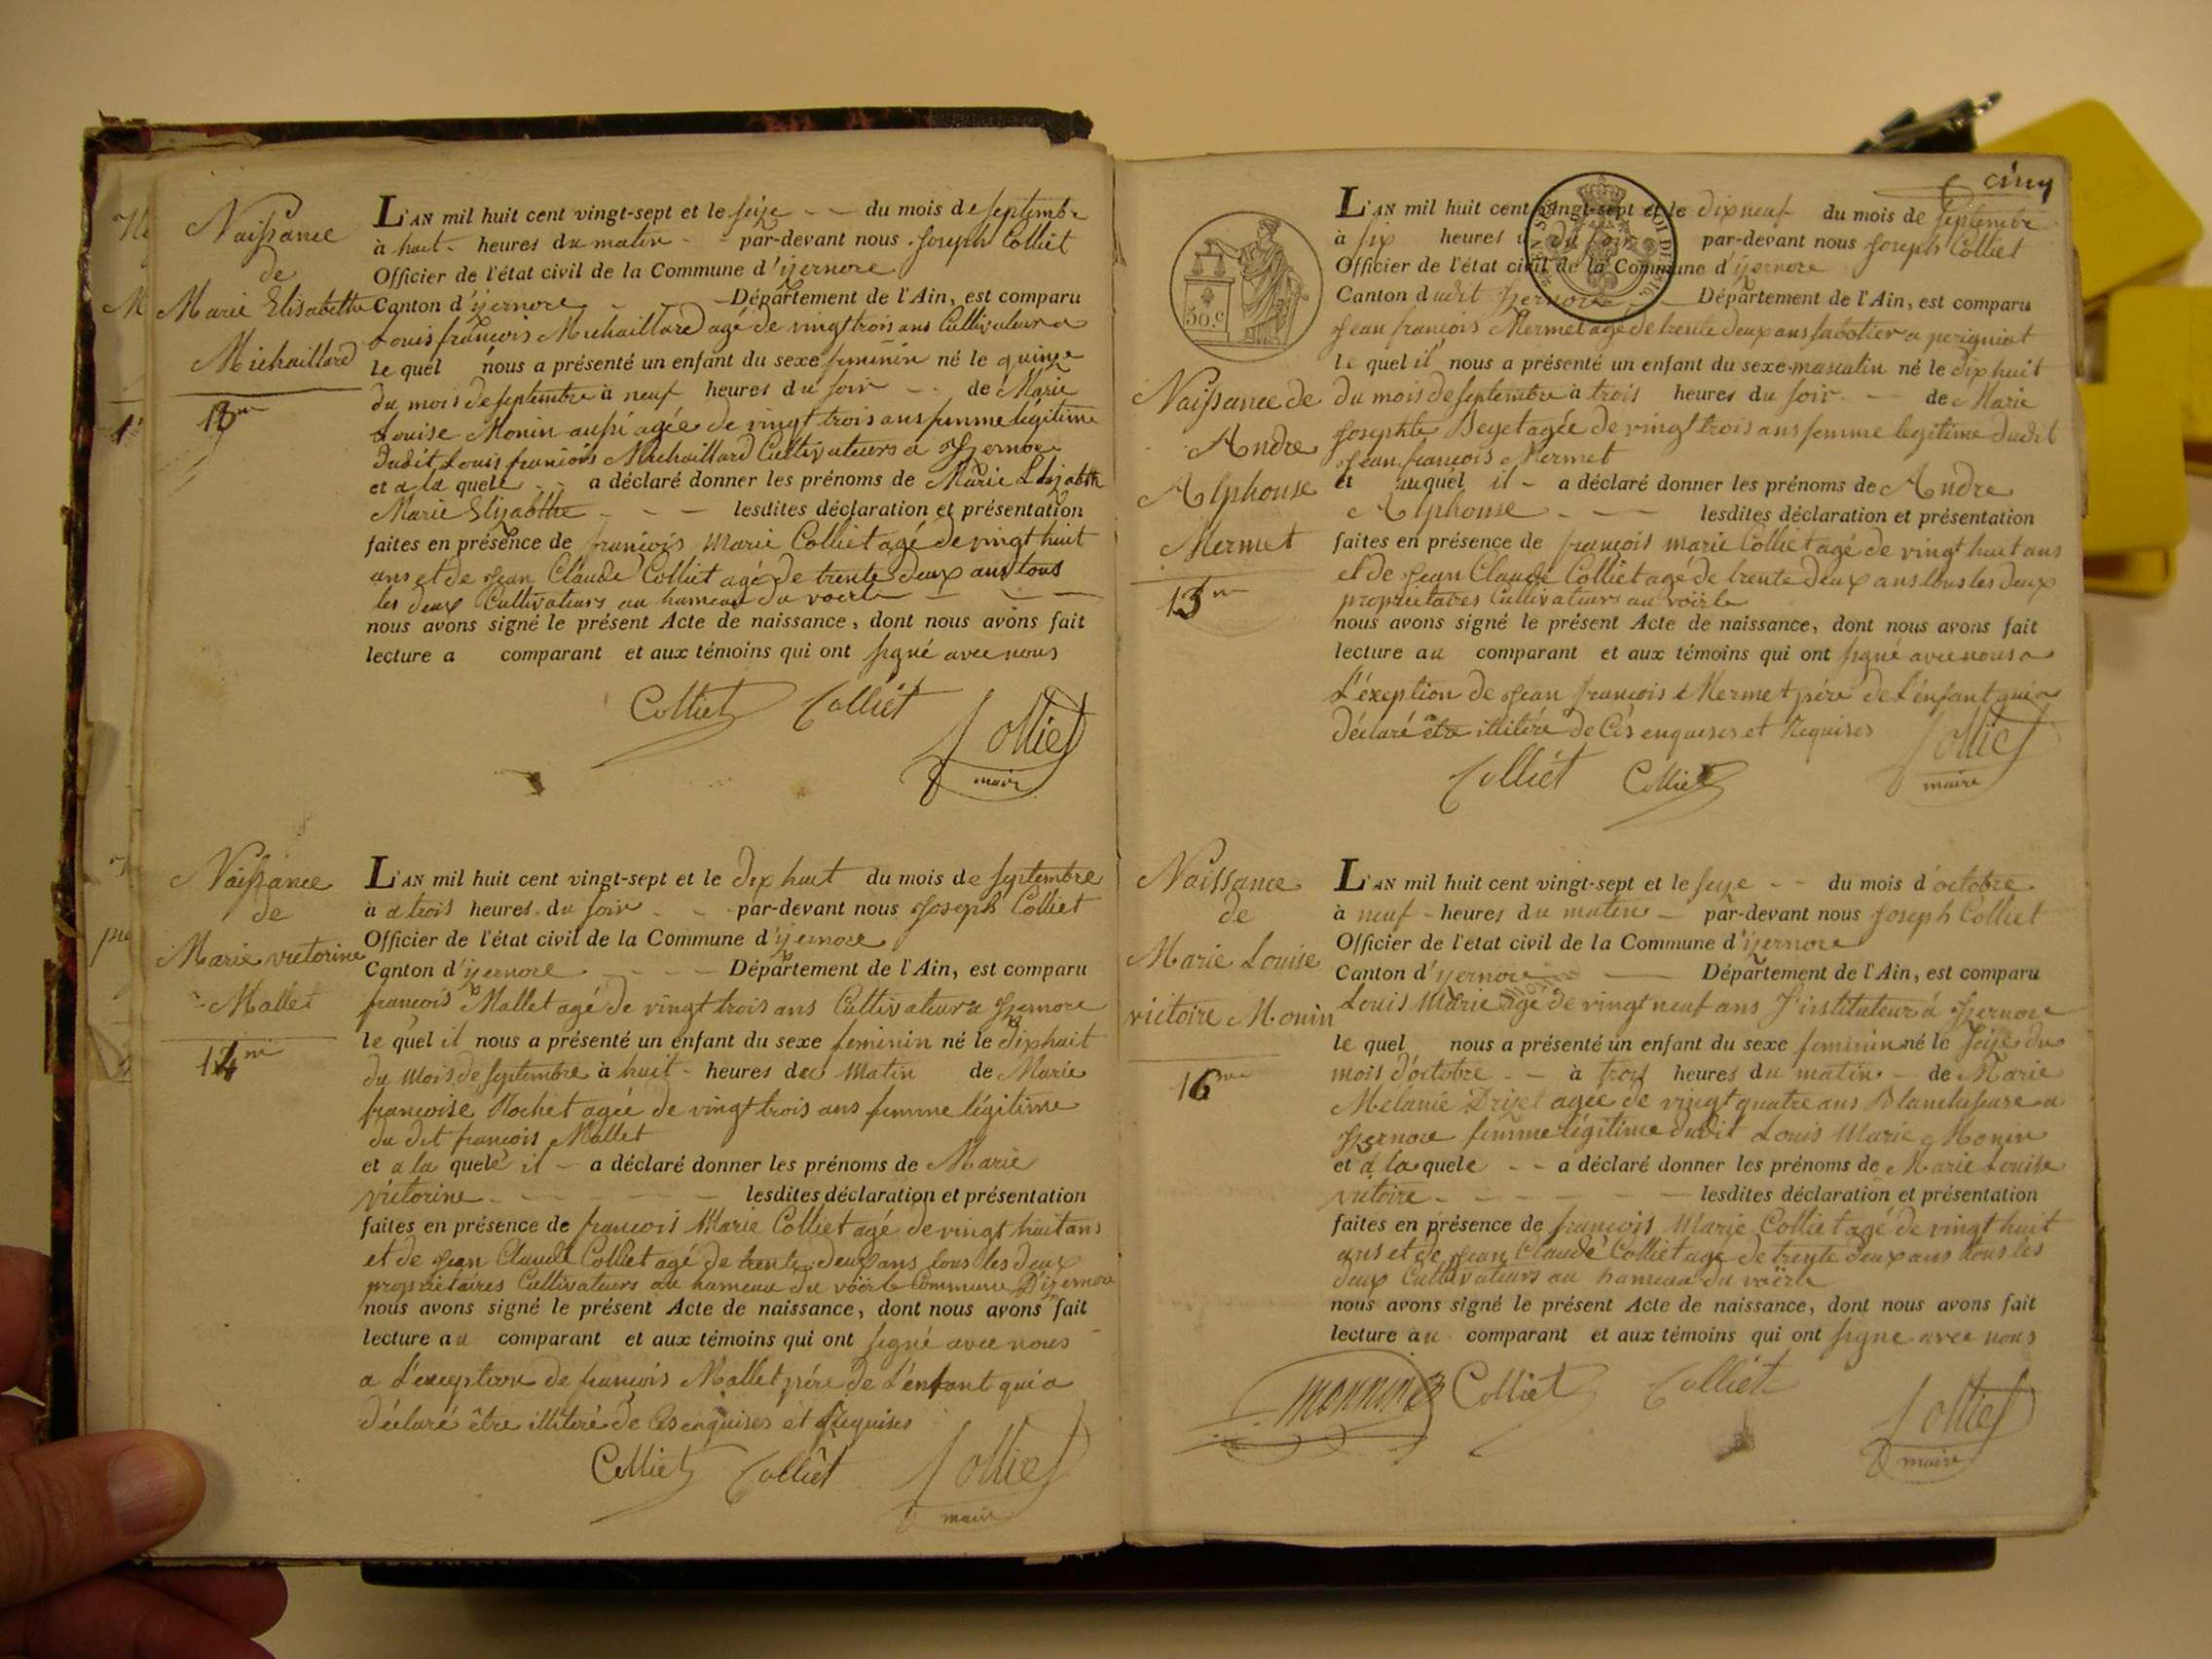 Naissance
de
Marie Elisabethe
Michaillard
13me
L'AN mil huit cent vingt-sept et le seize - - du mois de septembre
à huit - heures du matin - - par-devant nous Joseph Colliet
Officier de l'état civil de la Commune d'izernore
Canton d'izernore - - Département de l'Ain, est comparu
Louis françois Michaillard agé de vingt trois ans Cultivateur a
le quel nous a présenté un enfant du sexe feminin né le quinze
du mois de septembre à neuf heures du soir - - de Marie
Louise Monin aussi agée de vingt trois ans femme légitime
dudit Louis françois Michaillard Cultivateurs a Izernore
et a la quele - - a déclaré donner les prénoms de Marie Elizabth
Marie Elizabthe - - - lesdites déclaration et présentation
faites en présence de françois Marie Colliet agé de vingt huit
ans et de Jean Claude Colliet agé de trente deux ans tous
les deux Cultivateurs au hameau du voërle - - -
nous avons signé le présent Acte de naissance, dont nous avons fait
lecture a comparant et aux témoins qui ont signé avec nous
Colliet Colliét Colliet
maire
Naissance
de
Marie victorine
Mallet
14me
L'AN mil huit cent vingt-sept et le dix huit du mois de septembre
à a trois heures du soir - - par-devant nous Joseph Colliet
Officier de l'état civil de la Commune d'izernore
Canton d'izernore - - - - Département de l'Ain, est comparu
françois Mallet agé de vingt trois ans Cultivateur a Izernore
le quel il nous a présenté un enfant du sexe feminin né le dix huit
du Mois de septembre à huit - heures du Matin de Marie
françoise Rochet agée de vingt trois ans femme légitime
du dit françois Mallet
et a la quelé il - a déclaré donner les prénoms de Marie
victorine - - - - - lesdites déclaration et présentation
faites en présence de françois Marie Colliet agé de vingt huit ans
et de Jean Claude Colliet agé de trente deux ans tous les deux
propriétaires Cultivateurs au hameau du voërle Commune D'izernore
nous avons signé le présent Acte de naissance, dont nous avons fait
lecture au comparant et aux témoins qui ont signé avec nous
a L'exception de françois Mallet père de L'enfant qui a
déclaré être illitéré de Ces enquises et Requises
Colliet Colliét Colliet
maire
cinq
30.c
Naissance de
Andre
Alphonse
Mermet
15me
L'AN mil huit cent vingt-sept et le dix neuf du mois de septembre
à six heures du soir par-devant nous Joseph Colliet
Officier de l'état civil de la Commune d'izernore
Canton dudit Izernore - Département de l'Ain, est comparu
Jean françois Mermet agé de trente deux ans sabotier a perigniat
le quel il nous a présenté un enfant du sexe masculin né le dix huit
du mois de septembre à trois heures du soir - - de Marie
Josephte Beyet agée de vingt trois ans femme legitime dudit
Jean françois Mermet
et auquél il - a déclaré donner les prénoms de Andre
Alphonse - - - lesdites déclaration et présentation
faites en présence de françois marie Colliet agé de vingt huit ans
et de Jean Claude Colliet agé de trente deux ans tous les deux
propriétaires Cultivateurs au voërle
nous avons signé le présent Acte de naissance, dont nous avons fait
lecture au comparant et aux témoins qui ont signé avec nous a
L'éxception de Jean françois Mermet père de L'enfant qui a
déclaré être illitéré de Cés enquises et Requises
Colliét Colliet Colliet
maire
Naissance
de
Marie Louise
victoire Monin
16me
L'AN mil huit cent vingt-sept et le seize - - du mois d'octobre
à neuf - heures du matin - par-devant nous Joseph Colliet
Officier de l'état civil de la Commune d'izernore
Canton d'izernore - Département de l'Ain, est comparu
Louis Marie Monin agé de vingt neuf ans instituteur à Izernore
le quel nous a présenté un enfant du sexe feminin né le seize du
mois d'octobre - - à trois heures du matin - de Marie
Mélanie agée de vingt quatre ans Blanchiseuse a
Izernore femme légitime dudit Louis Marie Monin
et à la quele - - a déclaré donner les prénoms de Marie Louise
victoire - - - - - - lesdites déclaration et présentation
faites en présence de françois Marie Colliet agé de vingt huit
ans et de Jean Claude Colliet agé de trente deux ans tous les
deux Cultivateurs au hameau du voërle
nous avons signé le présent Acte de naissance, dont nous avons fait
lecture au comparant et aux témoins qui ont signé avec nous
Monnin Colliet Colliét Colliet
maire